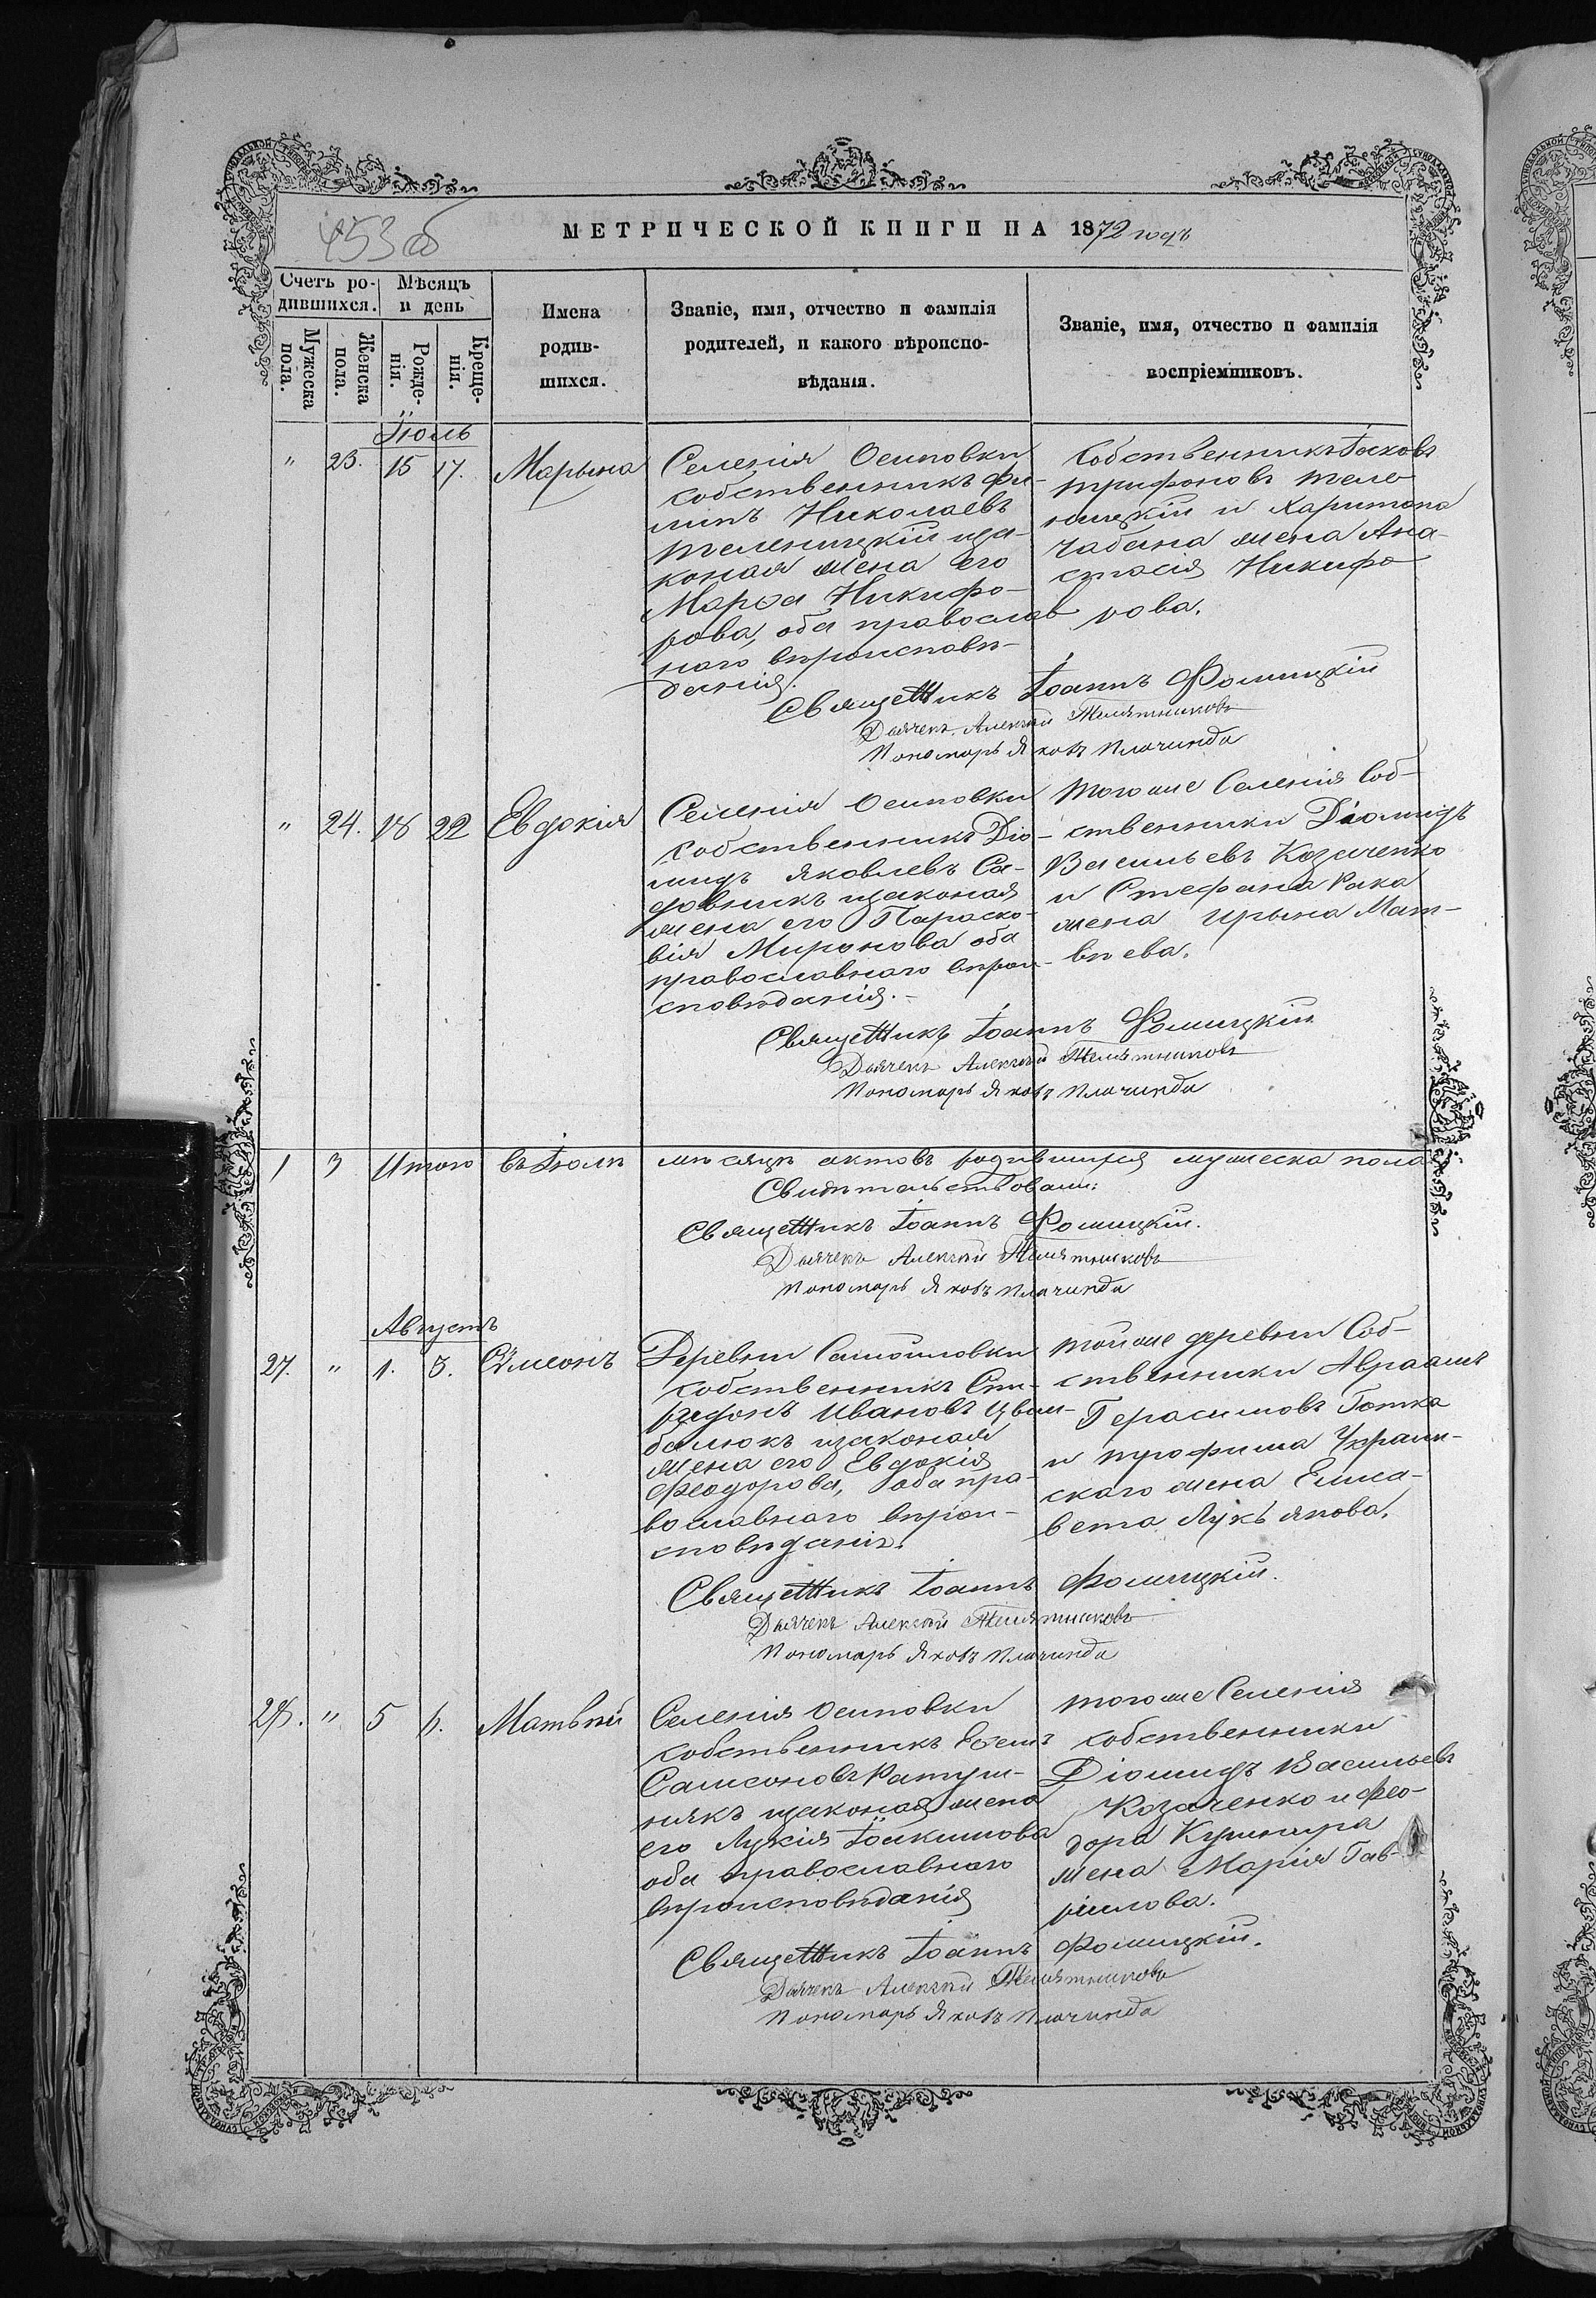 453 об
МЕТРИЧЕСКОЙ КНИГИ НА 1872 годъ
Счетъ ро-
дившихся.
Мѣсяцъ
и день
Мужеска
пола.
Женска
пола.
Рожде-
нія.
Креще-
нія.
Имена
родив-
шихся.
Званіе, имя, отчество и фамилія
родителей, и какого вѣроиспо-
вѣданія.
Званіе, имя, отчество и фамилія
воспріемниковъ.
Іюль
" 23. 15 17. Марына
Селенія Осиповки
собственникъ Фи-
липъ Николаевъ
Телешицкій и за-
коная жена его
Марѳа Никифо-
рова, оба православ
наго вѣроисповѣ-
данія.
Собственникъ Іаковъ
Трифоновъ Теле-
шицкій и Харитона
Чабана жена Ана-
стасія Никифо
рова.
Священникъ Іоаннъ Фомицкій
Дьячекъ Алексѣй Телятниковъ
Пономарь Яковъ Плачинда
" 24. 18 22 Евдокія
Селенія Осиповки
собственникъ Діо-
мидъ Яковлевъ Са-
довникъ изаконая
жена его Параско-
вія Миронова оба
православнаго вѣрои-
сповѣданія.-
Тогоже Селенія Соб-
ственники Діомидъ
Васильевъ Козаченко
и Стефана Рака
жена Ирына Мат-
вѣева.
Священникъ Іоаннъ Фомицкій
Дьячекъ Алексѣй Телятниковъ
Пономарь Яковъ Плачинда
1 3 Итого въ Іюлѣ мѣсяцѣ актовъ родившихся мужеска пола
Свидѣтельствовали:
Священникъ Іоаннъ Фомицкій.
Дьячекъ Алексѣй Телятниковъ
Пономарь Яковъ Плачинда
Августъ
27. " 1. 3. Сѵмеонъ
Деревни Самойловки
собственникъ Спи-
ридонъ Ивановъ Цвым-
балюкъ изаконая
жена его Евдокія
Феодорова, оба пра-
вославнаго вѣрои-
сповѣданія.
Тойже деревни Соб-
ственники Авраамъ
Герасимовъ Готка
и Трофима Украин-
скаго жена Елиса-
вета Лукъянова.
Священникъ Іоаннъ Фомицкій.
Дьячекъ Алексѣй Телятниковъ
Пономарь Яковъ Плачинда
28. " 5 6. Матвѣй
Селенія Осиповки
собственникъ Ефимъ
Самсоновъ Ратуш-
някъ изаконая жена
его Лукія Іоакимова
оба православнаго
вѣроисповѣданія
Тогоже Селенія
собственники
Діомидъ Васильевъ
Козаченко и Фео-
дора Кушнира
жена Марія Гав-
рилова.
Священникъ Іоаннъ Фомицкій.
Дьячекъ Алексѣй Телятниковъ
Пономарь Яковъ Плачинда